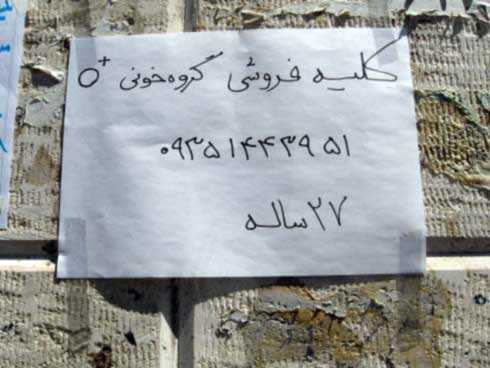 کلیه فروشی گروه خونی O+
۰۹۳۵۱۴۴۳۹۵۱
۲۷ ساله